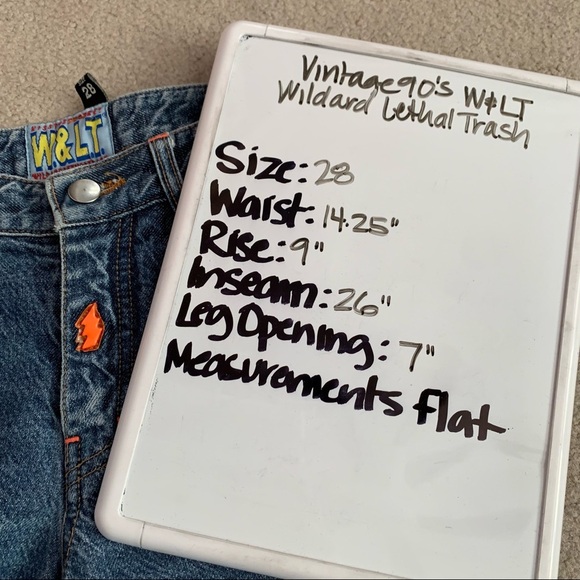 28
W.&L.T.
Vintage 90's W&LT
Wildard Lethal Trash
Size: 28
Waist: 14.25"
Rise: 9"
Inseam: 26"
Leg Opening: 7"
Measurements flat